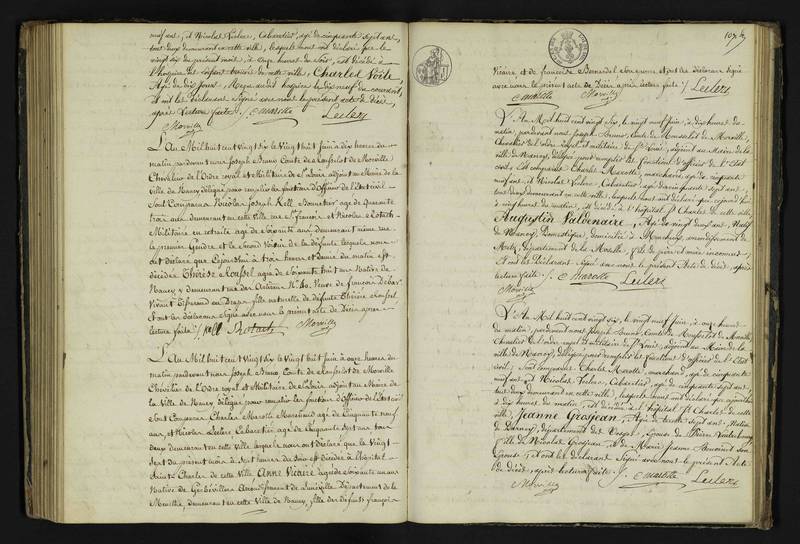 neuf ans, et Nicolas Leclerc, Cabaretier, agé de cinquante sept ans,
tous deux demeurant en cette ville, lesquels nous ont déclaré que le
vingt six du présent mois, à onze heures du soir, est décédé à
l'hospice des enfans trouvés de cette ville, Charles Voile
Agé de dix jours, déposé audit hospice le dix neuf du courant,
et ont les Déclarans signé avec nous le présent acte de décès,
après lecture faite /. C marotte Leclerc
Morville
L'An Mil huit cent vingt six le vingt huit juin à dix heures du
matin pardevant nous Joseph Bruno Comte de Monfelot de Morville
Chevalier de l'Ordre royal et Militaire de St Louis adjoint au Maire de la
Ville de Nancy délégué pour remplir les fonctions d'Officier de l'Etat civil
Sont Comparus Nicolas Joseph Kell Bonnetier agé de quarante
trois ans demeurant en cette ville rue St François et Nicolas
Militaire en retraite agé de soixante ans, demeurant même rue
le premier Gendre et le second Voisin de la défunte lesquels nous
ont déclaré que Cejourd'hui à trois heures et demie du matin est
décédée Thérèse Loufsel agée de soixante huit ans Native de
Nancy y demeurant rue des Artisans No 40, Veuve de françois
Vivant Tisserand en Draps fille naturelle de défunte Thérèse Loufsel
et ont les déclarans signé avec nous le présent acte de Décès après
lecture faite /. Kell Morville
L'An Mil huit cent vingt six le vingt huit juin à onze heures du
matin pardevant nous Joseph Bruno Comte de Monfelot de Morville
Chevalier de l'Ordre royal et Militaire de St Louis adjoint au Maire de
la Ville de Nancy délégué pour remplir les fonctions d'Officier de l'Etat civil
Sont Comparus Charles Marotte Marchand agé de cinquante neuf
ans, et Nicolas Leclerc Cabaretier agé de cinquante sept ans tous
deux demeurant en cette ville lesquels nous ont déclaré que le vingt-
sept du présent mois à sept heures du soir est décédée à l'hôpital
Sainte Charles de cette ville Anne Vicaire agée de soixante un ans
Native de Gerbéviller Arrondissement de Lunéville Département de la
Meurthe, demeurant en cette Ville de Nancy, fille des défunts françois
Vicaire et de françoise Son épouse et ont les déclarans signé
avec nous le présent acte de Décès après lecture faite /. Leclerc
C marotte Morville
L'An Mil huit cent vingt six, le vingt neuf juin, à dix heures du
matin, pardevant nous Joseph Bruno, Comte de Monfelot de Morville,
Chevalier de l'ordre royal et militaire de St Louis, adjoint au Maire de la
ville de Nancy, délégué pour remplir les fonctions d'officier de l'Etat
civil; sont comparus Charles Marotte, marchand, agé de cinquante
neuf ans, et Nicolas Leclerc, Cabaretier, agé de cinquante sept ans,
tous deux demeurant en cette ville, lesquels nous ont déclaré que, cejourd'hui
à vingt heures du matin, est décédé à l'hôpital St Charles de cette ville,
Augustin Valdenaire, Agé de vingt deux ans, Natif
de Nancy, Domestique, domicilié à arrondissement de
Metz, département de la Moselle, fils de père et mère inconnus,
Et ont les Déclarans signé avec nous le présent Acte de décès, après
lecture faite /. C Marotte Leclerc
Morville
L'An Mil huit cent vingt six, le vingt neuf juin, à onze heures
du matin, pardevant nous Joseph Bruno, Comte de Monfelot de Morville,
Chevalier de l'ordre royal et militaire de St Louis, adjoint au Maire de la
ville de Nancy, délégué pour remplir les fonctions d'officier de l'Etat
civil; sont comparus Charles Marotte, marchand, agé de cinquante
neuf ans, et Nicolas Leclerc, Cabaretier, agé de cinquante sept ans,
tous deux demeurant en cette ville, lesquels nous ont déclaré que, cejourd'hui
à dix heures du matin, est décédée à l'hôpital St Charles de cette
ville, Jeanne Grosjean, Agée de trente sept ans, Native
de département des Vosges, épouse de Pierre
fille de Nicolas Grosjean, et de Marie Jeanne son
Epouse, et ont les déclarans signé avec nous le présent Acte
de décès, après lecture faite /. C marotte Leclerc
Morville